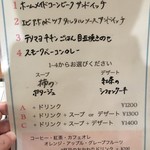 1. ホームメイドコーンビーフサンドイッチ
2. エビアボカド タルタルソースサンドイッチ
3. テリマヨチキンごはん 目玉焼きのせ
4. スモークベーコンカレー
1~4からお選びください
スープ
デザート
ポタージュ
シフォンケーキ
A + ドリンク ¥1200
B + ドリンク + スープ or デザート ¥1400
C + ドリンク + スープ + デザート
コーヒー・紅茶・カフェオレ
オレンジ・アップル・グレープフルーツ